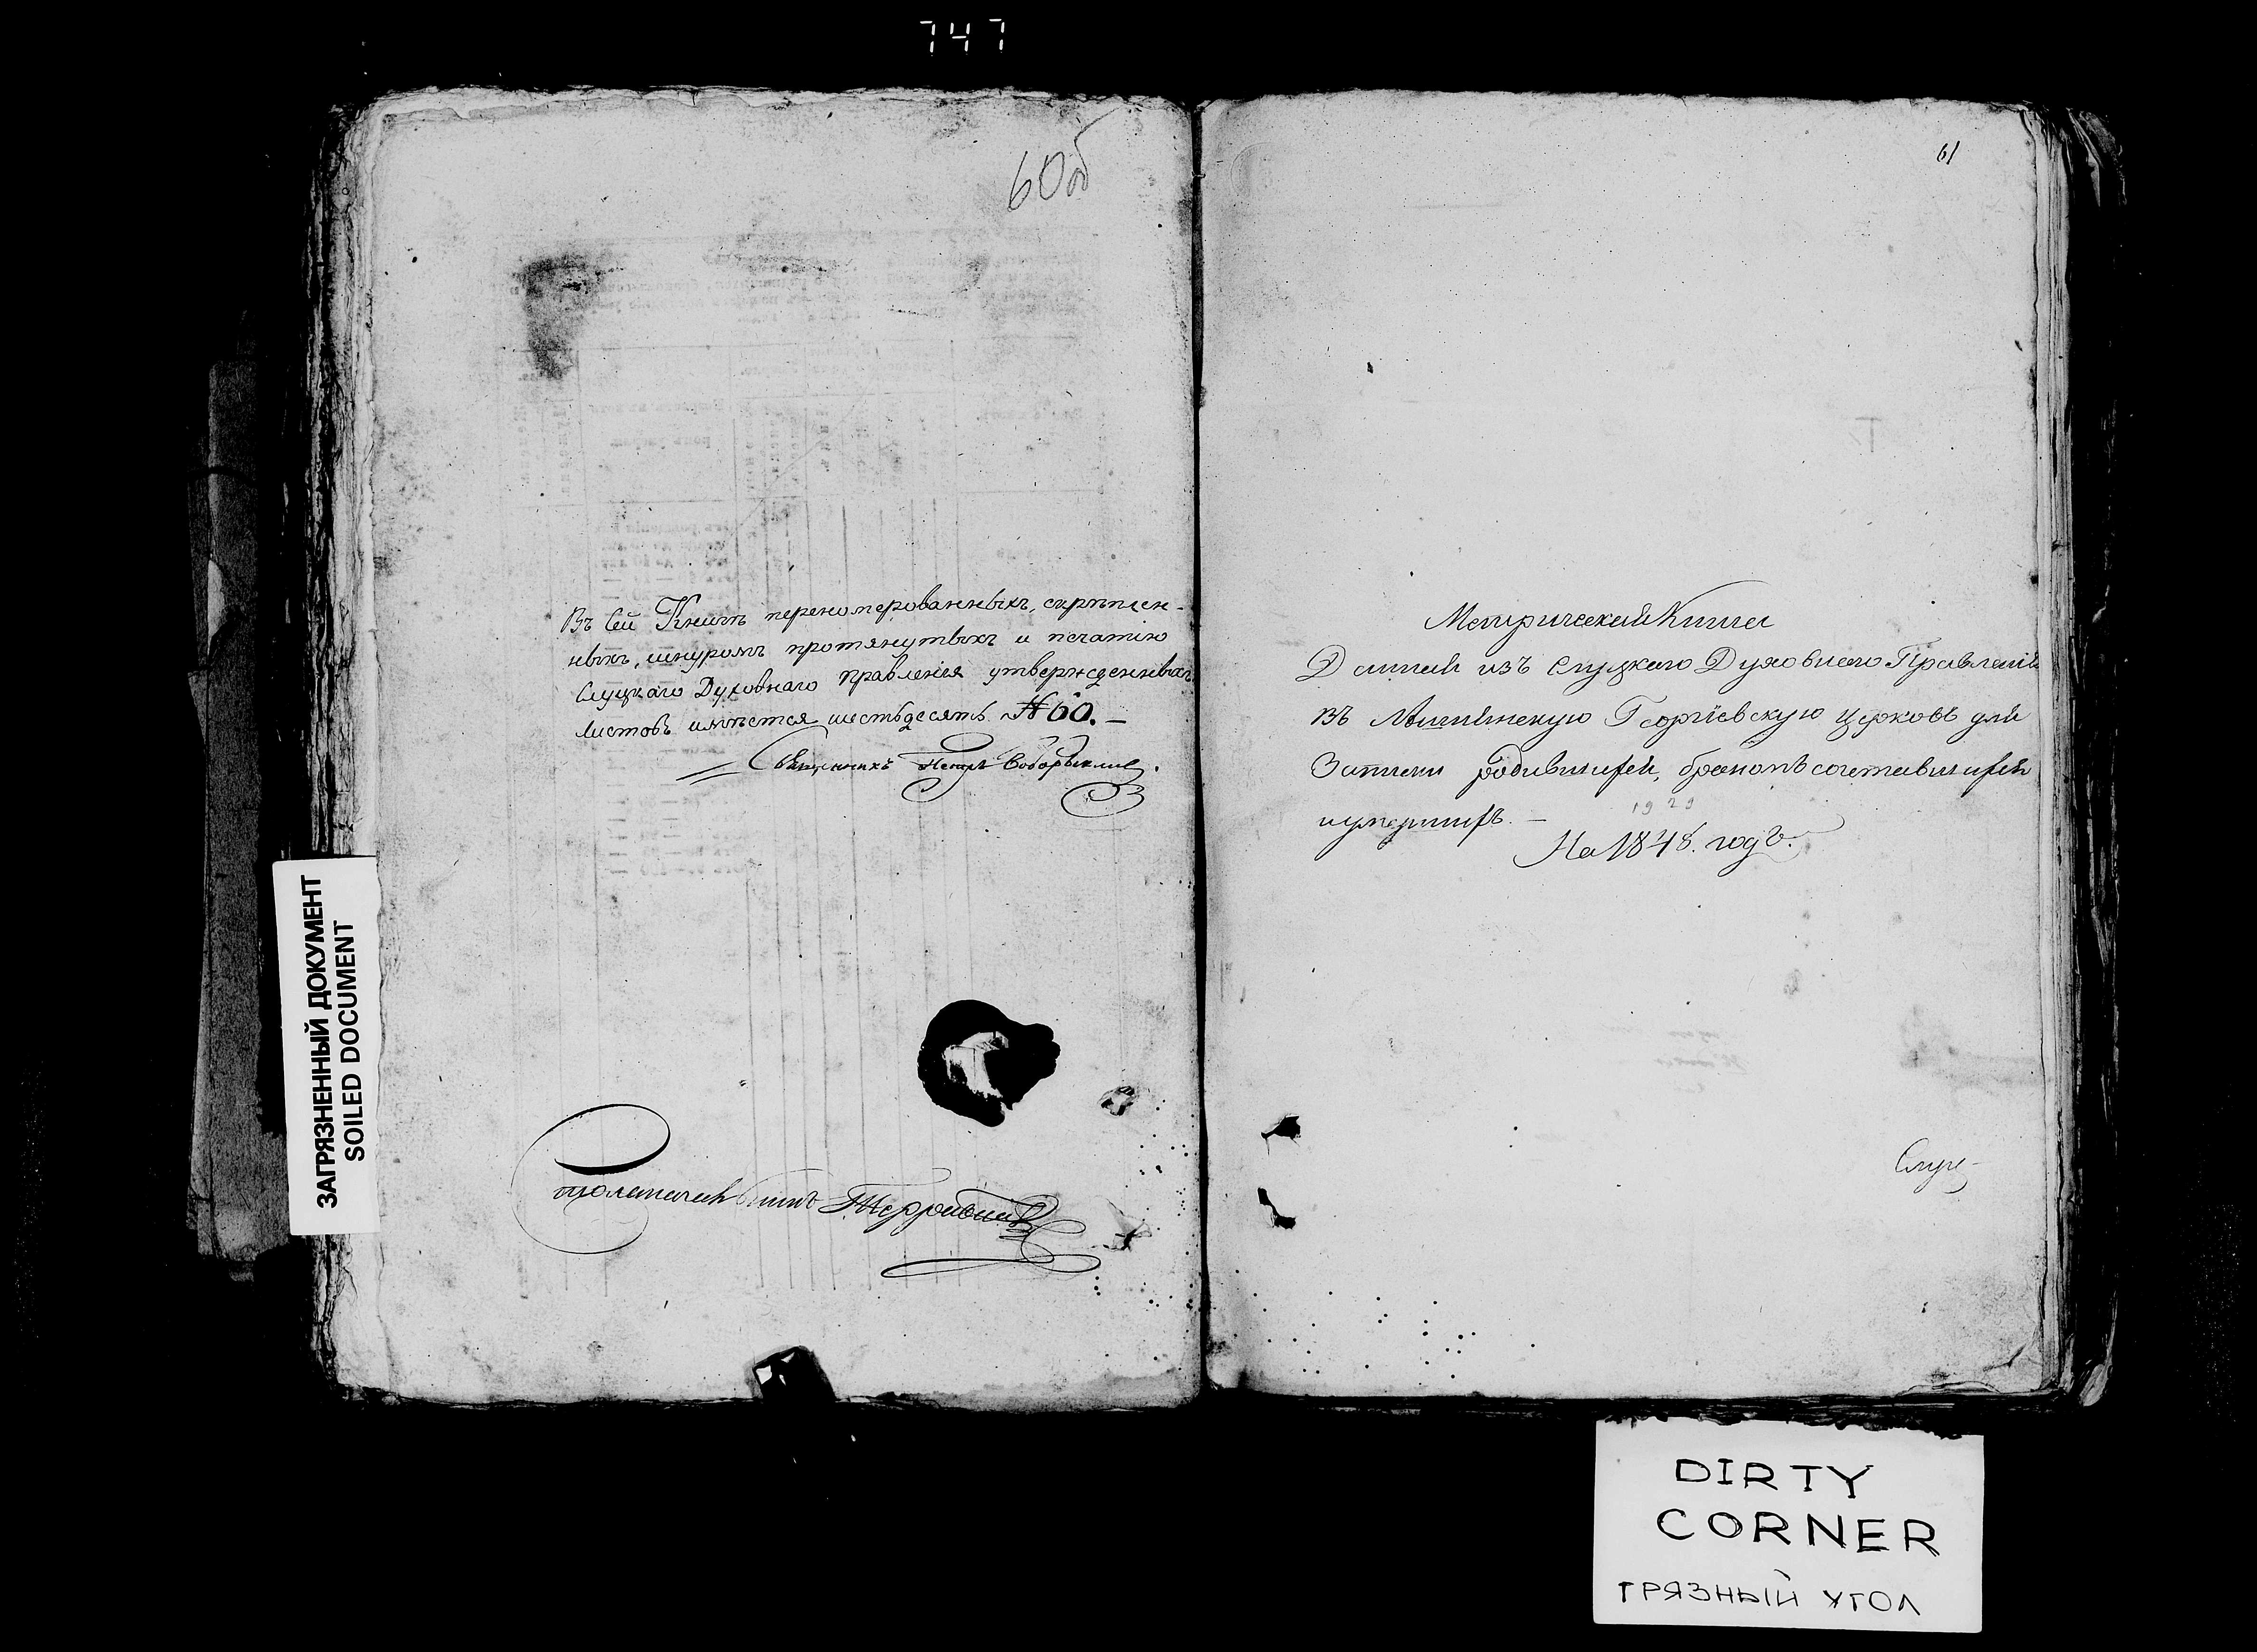 747
60об
Въ сей Книгѣ переномерованныхъ, скрѣплен-
ныхъ, шнуромъ протянутыхъ и печатію
Слуцкаго Духовнаго Правленія утвержденныхъ
листовъ имѣется шестьдесятъ № 60. —
Священникъ
ЗАГРЯЗНЕННЫЙ ДОКУМЕНТ
SOILED DOCUMENT
61
Метрическая Книга
Данная изъ Слуцкаго Духовнаго Правленія
въ Георгіевскую церковь для
Записки родившихся, бракомъ сочетавшихся
и умершихъ. —
1929
На 1848. годъ.
DIRTY
CORNER
ГРЯЗНЫЙ УГОЛ